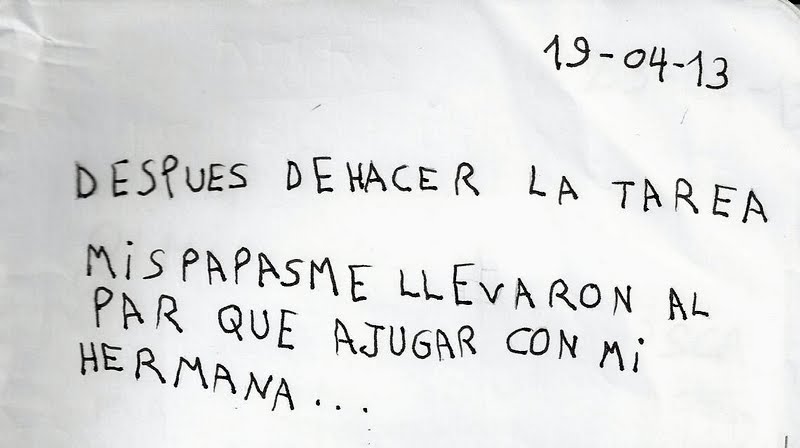 19-04-13
DESPUES DEHACER LA TAREA
MiSPAPASME LLEVARON AL
PAR QUE AJUGAR CON Mi
HERMANA...